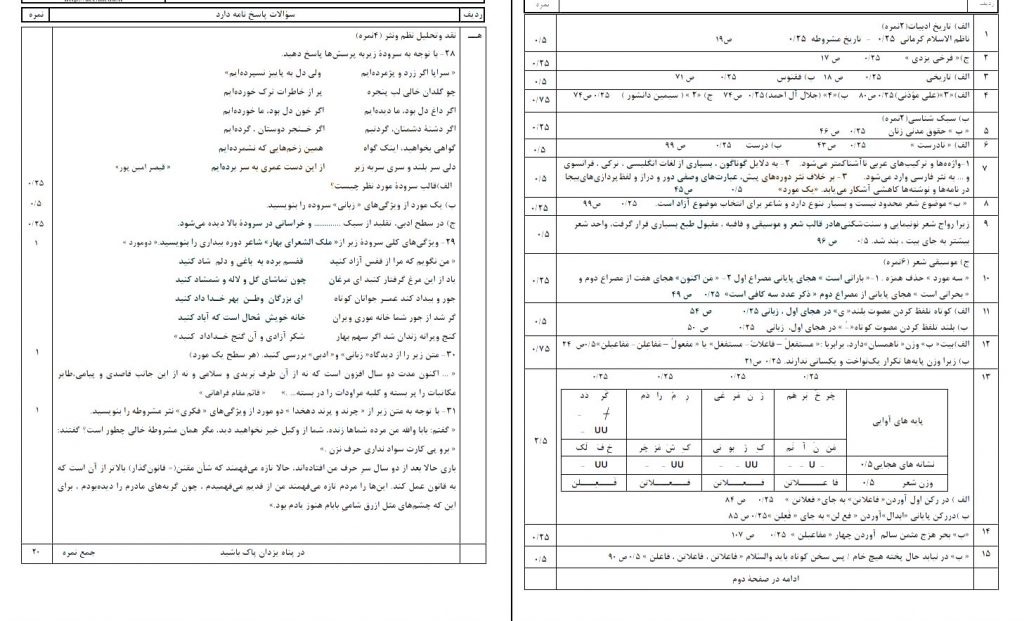 نمره
ردیف
۱
الف) تاریخ ادبیات(۲نمره)
ناظم الاسلام کرمانی ۰/۲۵ - تاریخ مشروطه ۰/۲۵ ص۱۹
۰/۵
۲
ج)« فرخی یزدی » ۰/۲۵ ص ۱۷
۰/۲۵
۳
الف) تاریخی ۰/۲۵ ص ۱۸ ب) ققنوس ۰/۲۵ ص ۷۱
۰/۵
۴
الف)«۳»(علی مؤذنی)۰/۲۵ص۸۰ ب)«۴» (جلال آل احمد)۰/۲۵ ص۷۴ ج) «۲ » ( سیمین دانشور ) ۰/۲۵ص۷۴
۰/۷۵
ب) سبک شناسی(۲نمره)
۵
« ب » حقوق مدنی زنان ۰/۲۵ ص ۴۶
۰/۲۵
۶
الف) « نادرست » ۰/۲۵ ص۴۳ ب) درست ۰/۲۵ ص ۹۹
۰/۵
۷
۱-واژه‌ها و ترکیب‌های عربی ناآشناکمتر می‌شود. ۲- به دلایل گوناگون ، بسیاری از لغات انگلیسی ، ترکی ، فرانسوی
و ... به نثر فارسی وارد می‌شود. ۳- بر خلاف نثر دوره‌های پیش، عبارت‌های وصفی دور و دراز و لفظ پردازی‌های‌بیجا
در نامه‌ها و نوشته‌ها کاهشی آشکار می‌یابد. «یک مورد» ۰/۵ ص۴۵
۰/۵
۸
« ب» موضوع شعر محدود نیست و بسیار تنوع دارد و شاعر برای انتخاب موضوع آزاد است. ۰/۲۵ ص۹۹
۰/۲۵
۹
زیرا رواج شعر نوتیمایی و سنت‌شکنی‌هادر قالب شعر و موسیقی و قافیه ، مقبول طبع بسیاری قرار گرفت، واحد شعر
بیشتر به جای بیت ، بند شد. ۰/۵ ص ۹۶
۰/۵
ج) موسیقی شعر (۶نمره)
۱۰
« سه مورد » حذف همزه . ۱-« بارانی است » هجای پایانی مصراع اول ۲- « من اکنون» هجای هفت از مصراع دوم و
« بحرانی است » هجای پایانی از مصراع دوم « ذکر عدد سه کافی است» ۰/۲۵ ص ۴۹
۰/۲۵
۱۱
الف) کوتاه تلفظ کردن مصوت بلند« ی» در هجای اول ، زبانی ۰/۲۵ ص ۵۴
ب) بلند تلفظ کردن مصوت کوتاه«ـِ » در هجای اول، زبانی ۰/۲۵ ص ۵۰
۰/۵
۱۲
الف)بیت« ب» وزن« ناهمسان»دارد. برابربا :« مستفعلُ – فاعلاتُ- مستفعل» یا « مفعولُ – مفاعلن- مفاعیلن»۰/۵ص ۲۴
ب) زیرا وزن پایه‌ها تکرار یک‌نواخت و یکسانی ندارند. ۰/۲۵ ص۲۱
۰/۷۵
۱۳
۰/۲۵ ۰/۲۵ ۰/۲۵ ۰/۲۵
پایه های آوایی
چر خ بر هم زِ ن مَ ر غی رِ مُ را دم گر دد
UU –
من نَ آ نم کِ ز بو نی کِ شَ مَز چر خِ فَ لَک
نشانه های هجایی۰/۵ – U – – UU – – UU – – UU –
وزن شعر ۰/۵ فا عـلاتن فـعـلاتن فـعـلاتن فـعـلن
الف ) در رکن اول آوردن« فاعلاتن» به جای« فعلاتن » ۰/۲۵ ص ۸۴
ب )دررکن پایانی «ابدال»آوردن « فع لن» به جای « فَعِلن »۰/۲۵ ص ۸۵
۲/۵
۱۴
«ب» بحر هزج مثمن سالم آوردن چهار « مفاعیلن » ۰/۲۵ ص ۱۰۷
۰/۲۵
۱۵
« ب» در نیابد حال پخته هیچ خام / پس سخن کوتاه باید والسّلام « فاعلاتن ، فاعلاتن ، فاعلن » ۰/۵ ص۹۰
۰/۵
ادامه در صفحهٔ دوم
ردیف
سؤالات پاسخ نامه دارد
نمره
هـ
نقد وتحلیل نظم ونثر (۴نمره)
۲۸- با توجه به سرودهٔ زیربه پرسش‌ها پاسخ دهید.
« سراپا اگر زرد و پژمرده‌ایم ولی دل به پاییز نسپرده‌ایم»
چو گلدان خالی لب پنجره پر از خاطرات ترک خورده‌ایم
اگر داغ دل بود، ما دیده‌ایم اگر خون دل بود، ما خورده‌ایم
اگر دشنهٔ دشمنان، گردنیم اگر خنجر دوستان ، گرده‌ایم
گواهی بخواهید، اینک گواه همین زخم‌هایی که نشمرده‌ایم
دلی سر بلند و سری سربه زیر از این دست عمری به سر برده‌ایم « قیصر امین پور»
الف)قالب سرودهٔ مورد نظر چیست؟
۰/۲۵
ب) یک مورد از ویژگی‌های « زبانی» سروده را بنویسید.
۰/۵
ج) در سطح ادبی، تقلید از سبک ............ و خراسانی در سرودهٔ بالا دیده می‌شود.
۰/۲۵
۲۹- ویژگی‌های کلی سرودهٔ زیر از« ملک الشعرای بهار» شاعر دوره بیداری را بنویسید.« دومورد »
۱
« من نگویم که مرا از قفس آزاد کنید قفسم برده به باغی و دلم شاد کنید
یاد از این مرغ گرفتار کنید ای مرغان چون تماشای گل و لاله و شمشاد کنید
جور و بیداد کند عمـر جوانان کوتاه ای بزرگان وطـن بهر خـدا داد کنید
گر شد از جور شما خانه موری ویران خانه خویش مُحال است که آباد کنید
کنج ویرانه زندان شد اگر سهم بهار شکر آزادی و آن گنج خـداداد کنید»
۳۰- متن زیر را از دیدگاه« زبانی» و « ادبی» بررسی کنید. (هر سطح یک مورد)
۱
« ... اکنون مدت دو سال افزون است که نه از آن طرف بریدی و سلامی و نه از این جانب قاصدی و پیامی.طایر
مکاتبات را پر بسته و کلبه مراودات را در بسته... .» « قائم مقام فراهانی »
۳۱- با توجه به متن زیر از « چرند و پرند دهخدا » دو مورد از ویژگی‌های « فکری» نثر مشروطه را بنویسید.
۱
« گفتم: بابا والله من مرده شماها زنده، شما از وکیل خیر نخواهید دید، مگر همان مشروطهٔ خالی چطور است؟ گفتند:
« برو پی کارت سواد نداری حرف نزن .»
باری حالا بعد از دو سال سر حرف من افتاده‌اند، حالا تازه می‌فهمند که شأن مقنن(= قانون‌گذار) بالاتر از آن است که
به قانون عمل کند. این‌ها را مردم تازه می‌فهمند من از قدیم می‌فهمیدم ، چون گربه‌های مادرم را دیده‌بودم ، برای
این که چشم‌های مثل ازرق شامی بابام هنوز یادم بود.»
در پناه یزدان پاک باشید
جمع نمره
۲۰